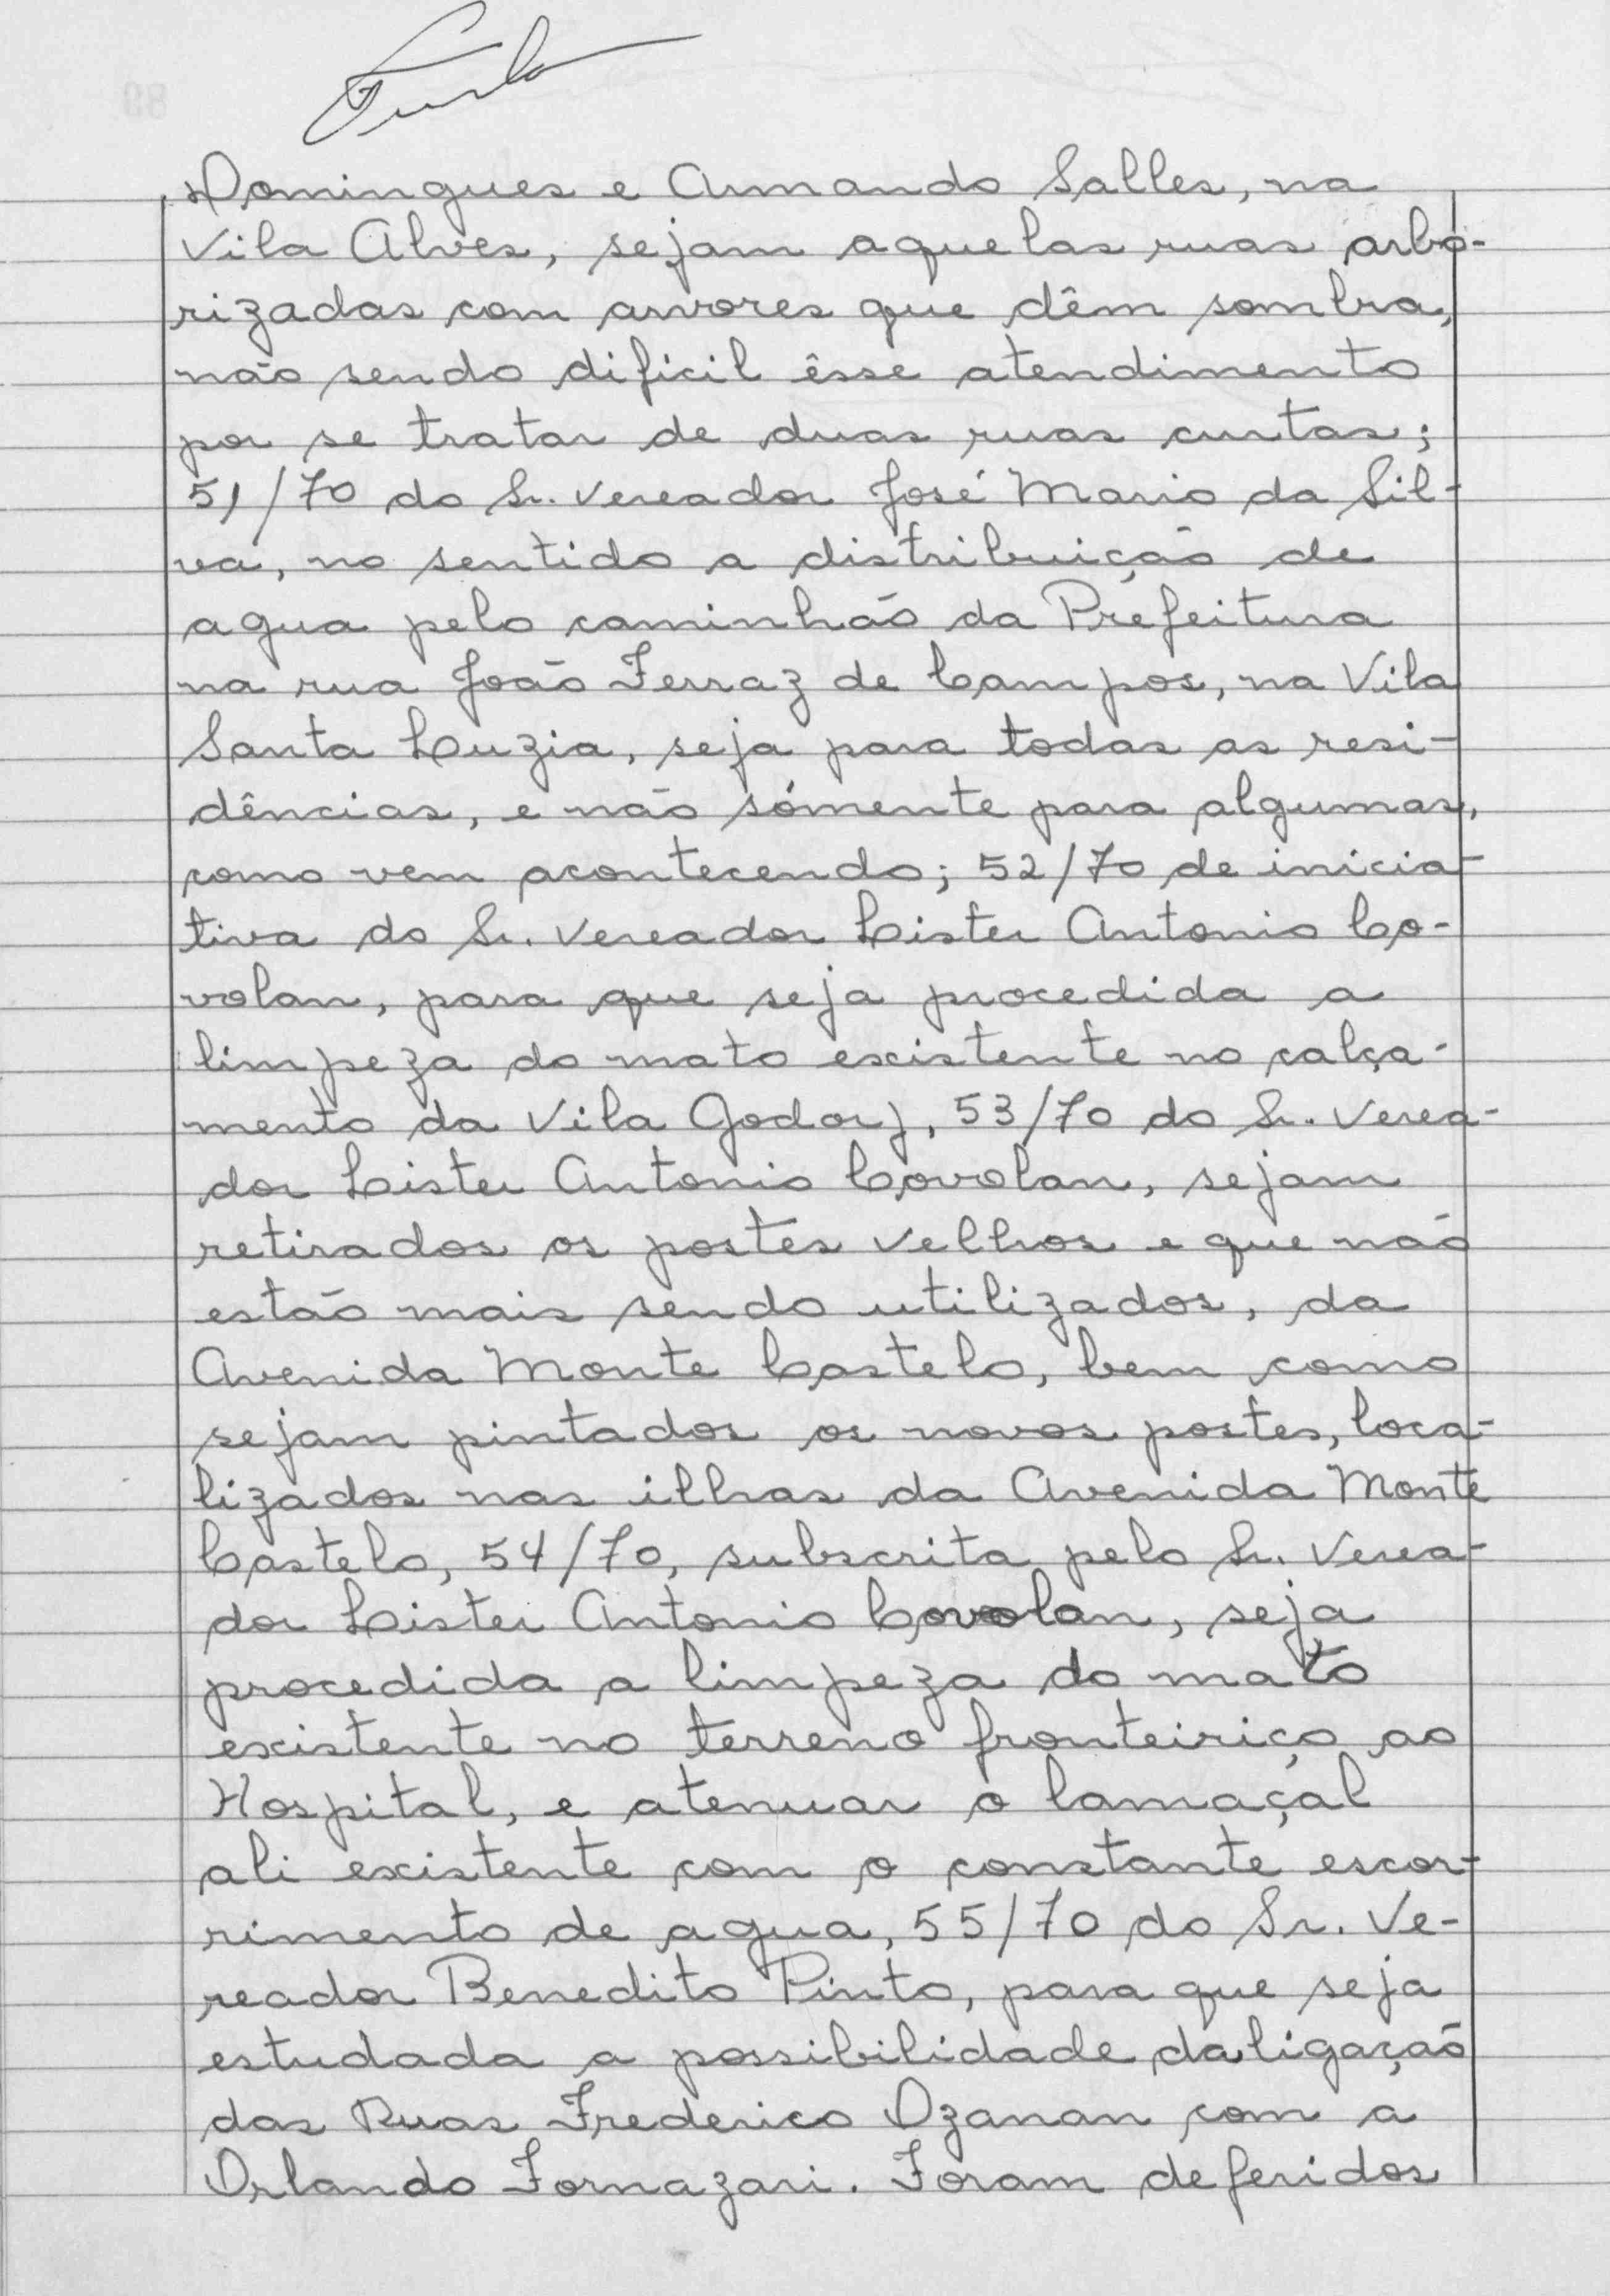 Domingues e Armando Salles, na
Vila Alves, sejam aquelas ruas arbo-
rizadas com arvores que dêm sombra,
não sendo dificil êsse atendimento
por se tratar de duas ruas curtas;
51/70 do Sr. Vereador José Mario da Sil-
va, no sentido a distribuição de
agua pelo caminhão da Prefeitura
na rua João Ferraz de Campos, na Vila
Santa Luzia, seja para todas as resi-
dências, e não sómente para algumas,
como vem acontecendo; 52/70 de inicia-
tiva do Sr. Vereador Lister Antonio Co-
volan, para que seja procedida a
limpeza do mato existente no calça-
mento da Vila Godoy, 53/70 do Sr. Verea-
dor Lister Antonio Covolan, sejam
retirados os postes velhos e que não
estão mais sendo utilizados, da
Avenida Monte Castelo, bem como
sejam pintados os novos postes, loca-
lizados nas ilhas da Avenida Monte
Castelo, 54/70, subscrita pelo Sr. Verea-
dor Lister Antonio Covolan, seja
procedida a limpeza do mato
existente no terreno fronteiriço ao
Hospital, e atenuar o lamaçal
ali existente com o constante escor-
rimento de agua, 55/70 do Sr. Ve-
reador Benedito Pinto, para que seja
estudada a possibilidade da ligação
das Ruas Frederico Ozanan com a
Orlando Fornazari. Foram deferidos